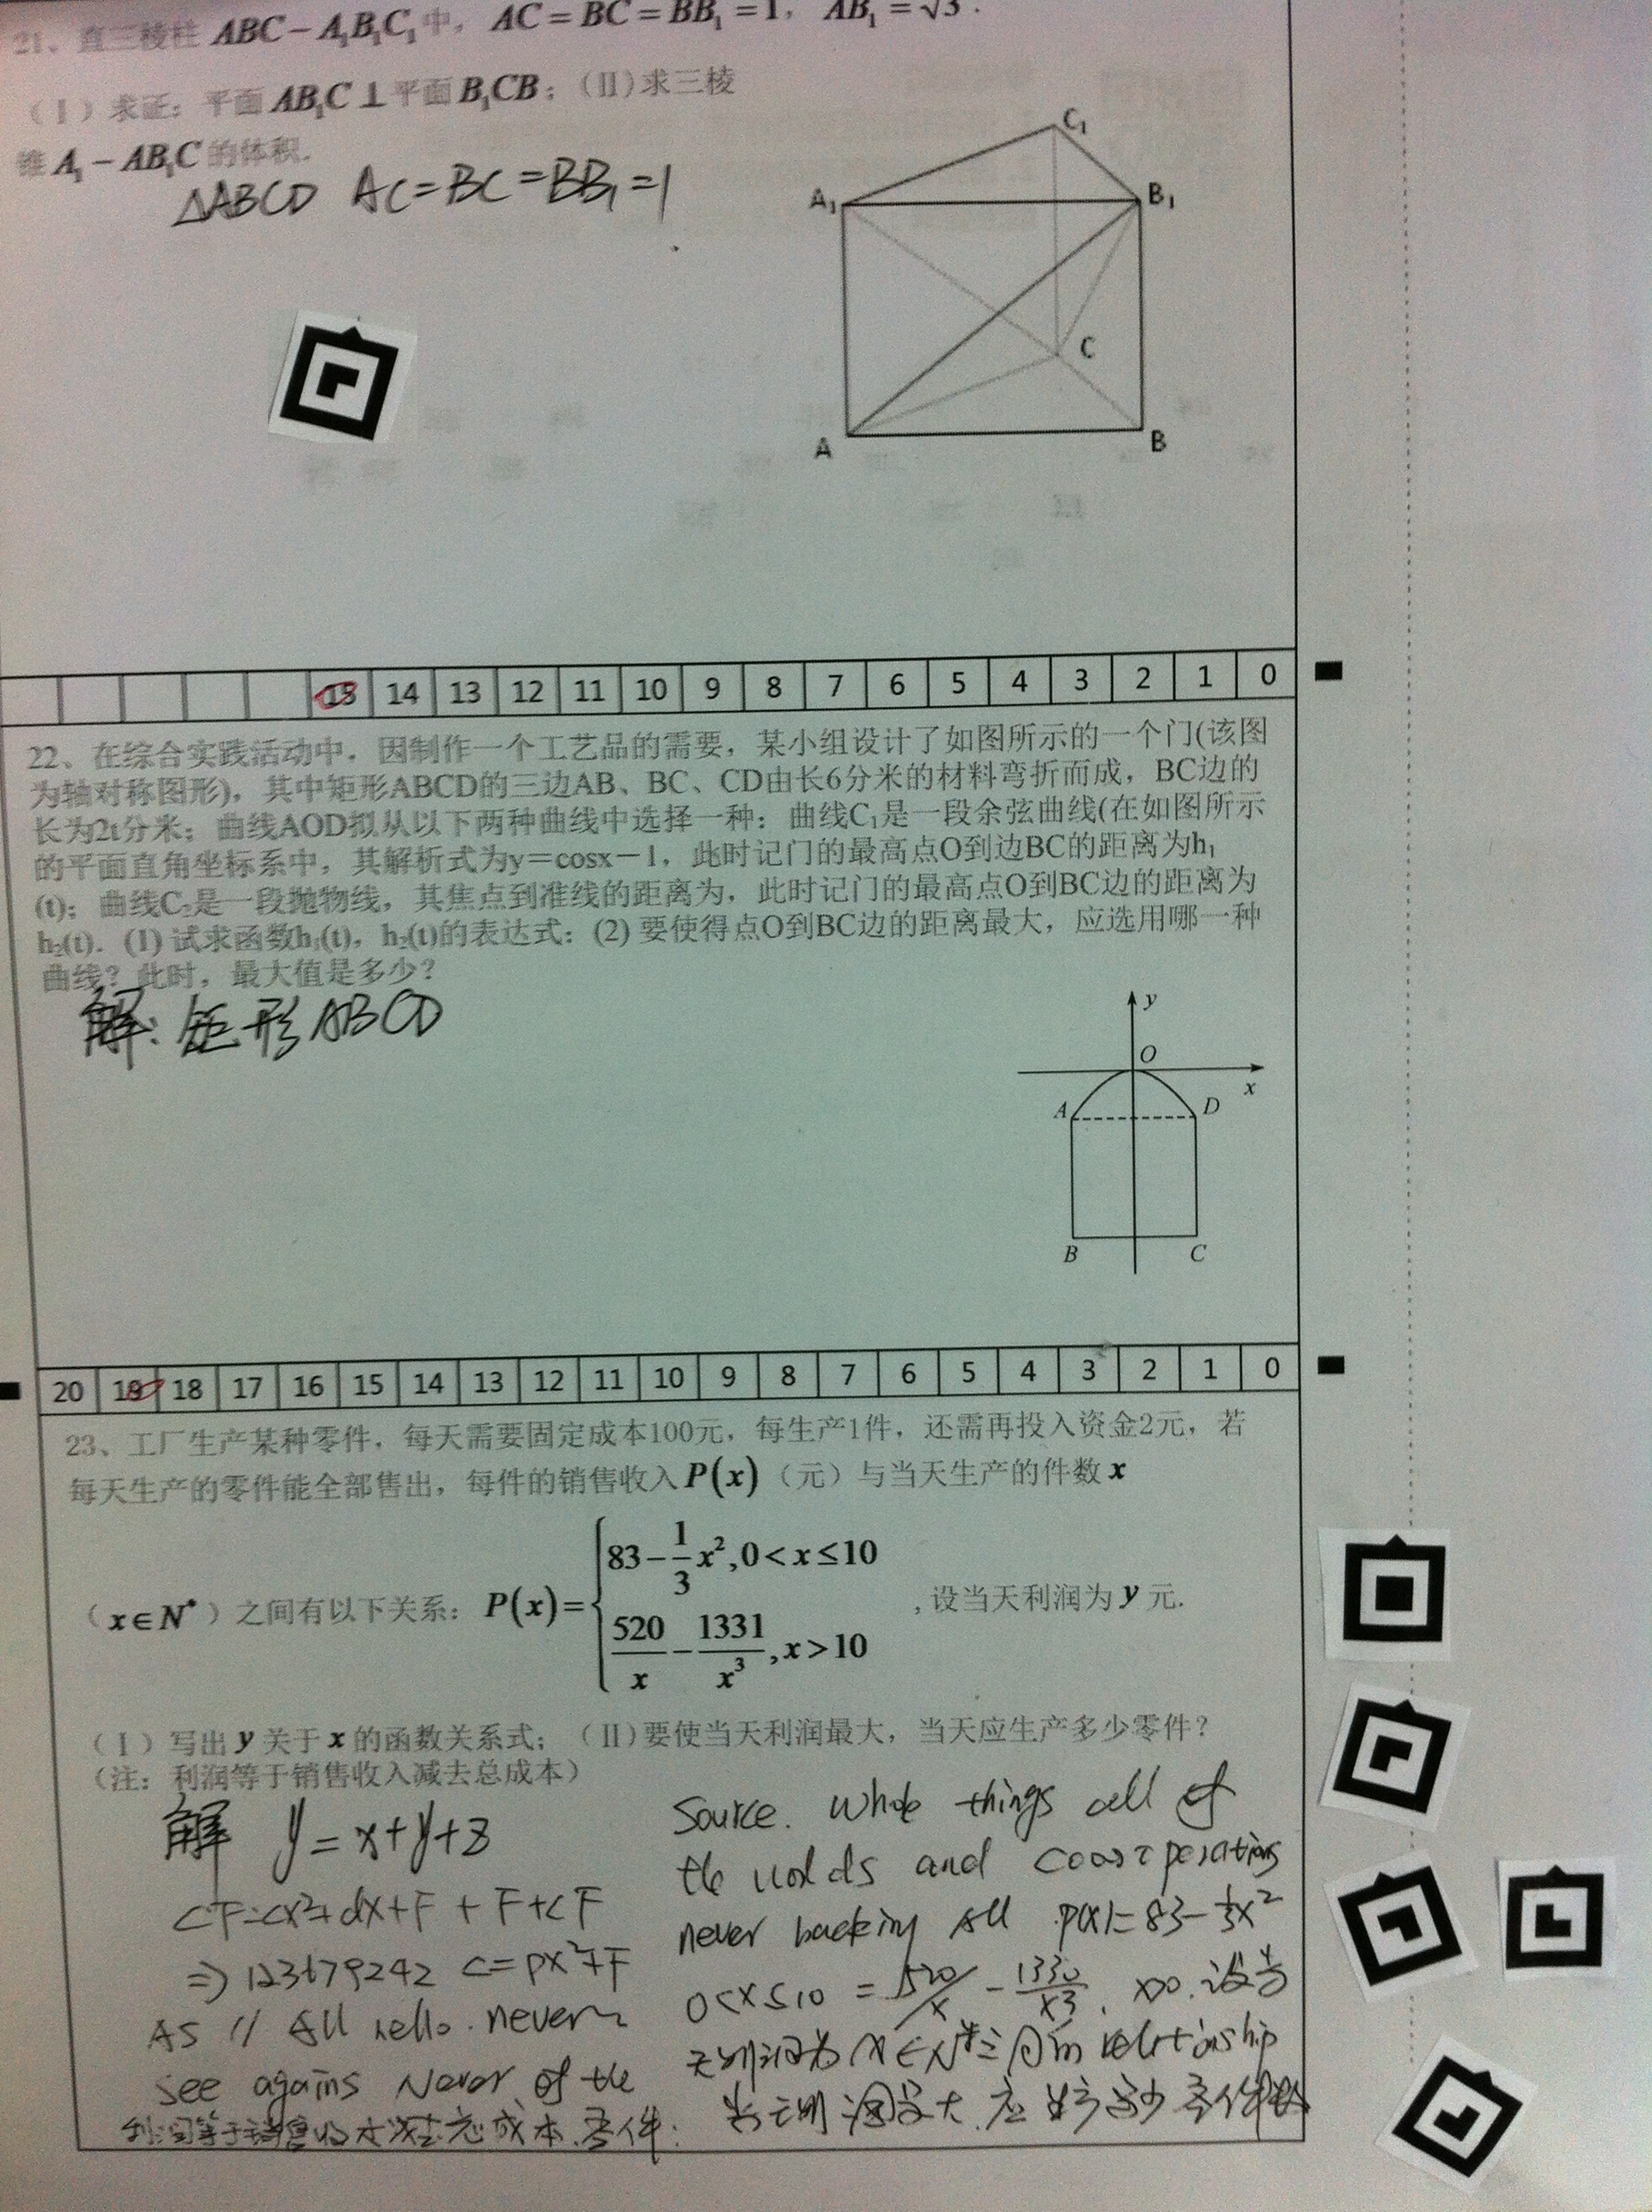 21、直三棱柱 ABC－A₁B₁C₁中，AC＝BC＝BB₁＝1，AB₁＝√3．
（Ⅰ）求证：平面AB₁C⊥平面B₁CB；（Ⅱ)求三棱
锥 A₁－AB₁C 的体积．
△ABCD AC=BC=BB₁=1
C₁
A₁
B₁
C
A
B
15 14 13 12 11 10 9 8 7 6 5 4 3 2 1 0
22、在综合实践活动中，因制作一个工艺品的需要，某小组设计了如图所示的一个门(该图
为轴对称图形)，其中矩形ABCD的三边AB、BC、CD由长6分米的材料弯折而成，BC边的
长为2t分米；曲线AOD拟从以下两种曲线中选择一种：曲线C₁是一段余弦曲线(在如图所示
的平面直角坐标系中，其解析式为y＝cosx－1，此时记门的最高点O到边BC的距离为h₁
(t)；曲线C₂是一段抛物线，其焦点到准线的距离为，此时记门的最高点O到BC边的距离为
h₂(t)．(1) 试求函数h₁(t)，h₂(t)的表达式；(2) 要使得点O到BC边的距离最大，应选用哪一种
曲线？此时，最大值是多少？
解：矩形ABCD
y
O
x
A
D
B
C
20 19 18 17 16 15 14 13 12 11 10 9 8 7 6 5 4 3 2 1 0
23、工厂生产某种零件，每天需要固定成本100元，每生产1件，还需再投入资金2元，若
每天生产的零件能全部售出，每件的销售收入P(x)（元）与当天生产的件数 x
（x∈N*）之间有以下关系：P(x)={83－1/3x²,0＜x≤10
520/x－1331/x³,x＞10
,设当天利润为 y 元.
（Ⅰ）写出 y 关于 x 的函数关系式；（Ⅱ)要使当天利润最大，当天应生产多少零件？
（注：利润等于销售收入减去总成本）
解 y=x+y+z
CF=cx²+dx+F+F+CF
⇒123679242 C=px²+F
AS // All hello. never
see agains Never of the
利润等于销售收入减去总成本.零件.
Source. Whole things all of
the and
never backing All p(x)=83-1/3x²
0<x≤10 = 520/x - 1330/x3. x>0.设当
天利润为 x∈N*之间 relationship
当天利润最大.应 多少零件